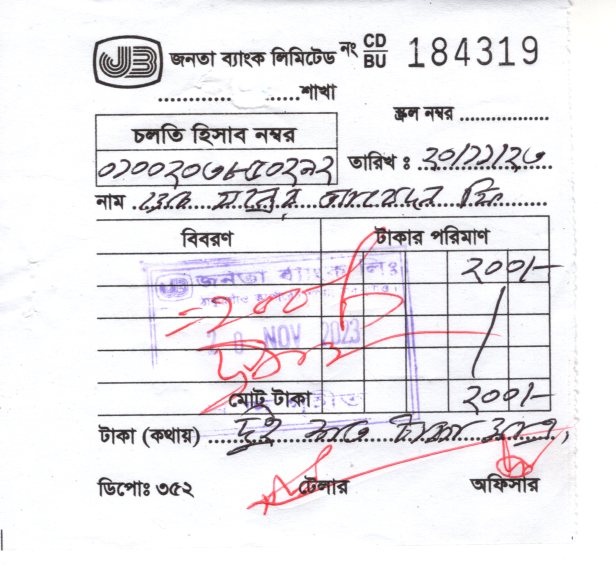 JB জনতা ব্যাংক লিমিটেড নং CD/BU 184319
....................শাখা
স্ক্রল নম্বর ....................
চলতি হিসাব নম্বর
তারিখ : ২০/১১/২৩
নাম
বিবরণ টাকার পরিমাণ
২০০/-
জনতা ব্যাংক লিঃ
= ২০০/-
20 NOV 2023
মোট টাকা ২০০/-
টাকা (কথায়) দুই শত টাকা মাত্র,
ডিপোঃ ৩৫২ টেলার অফিসার